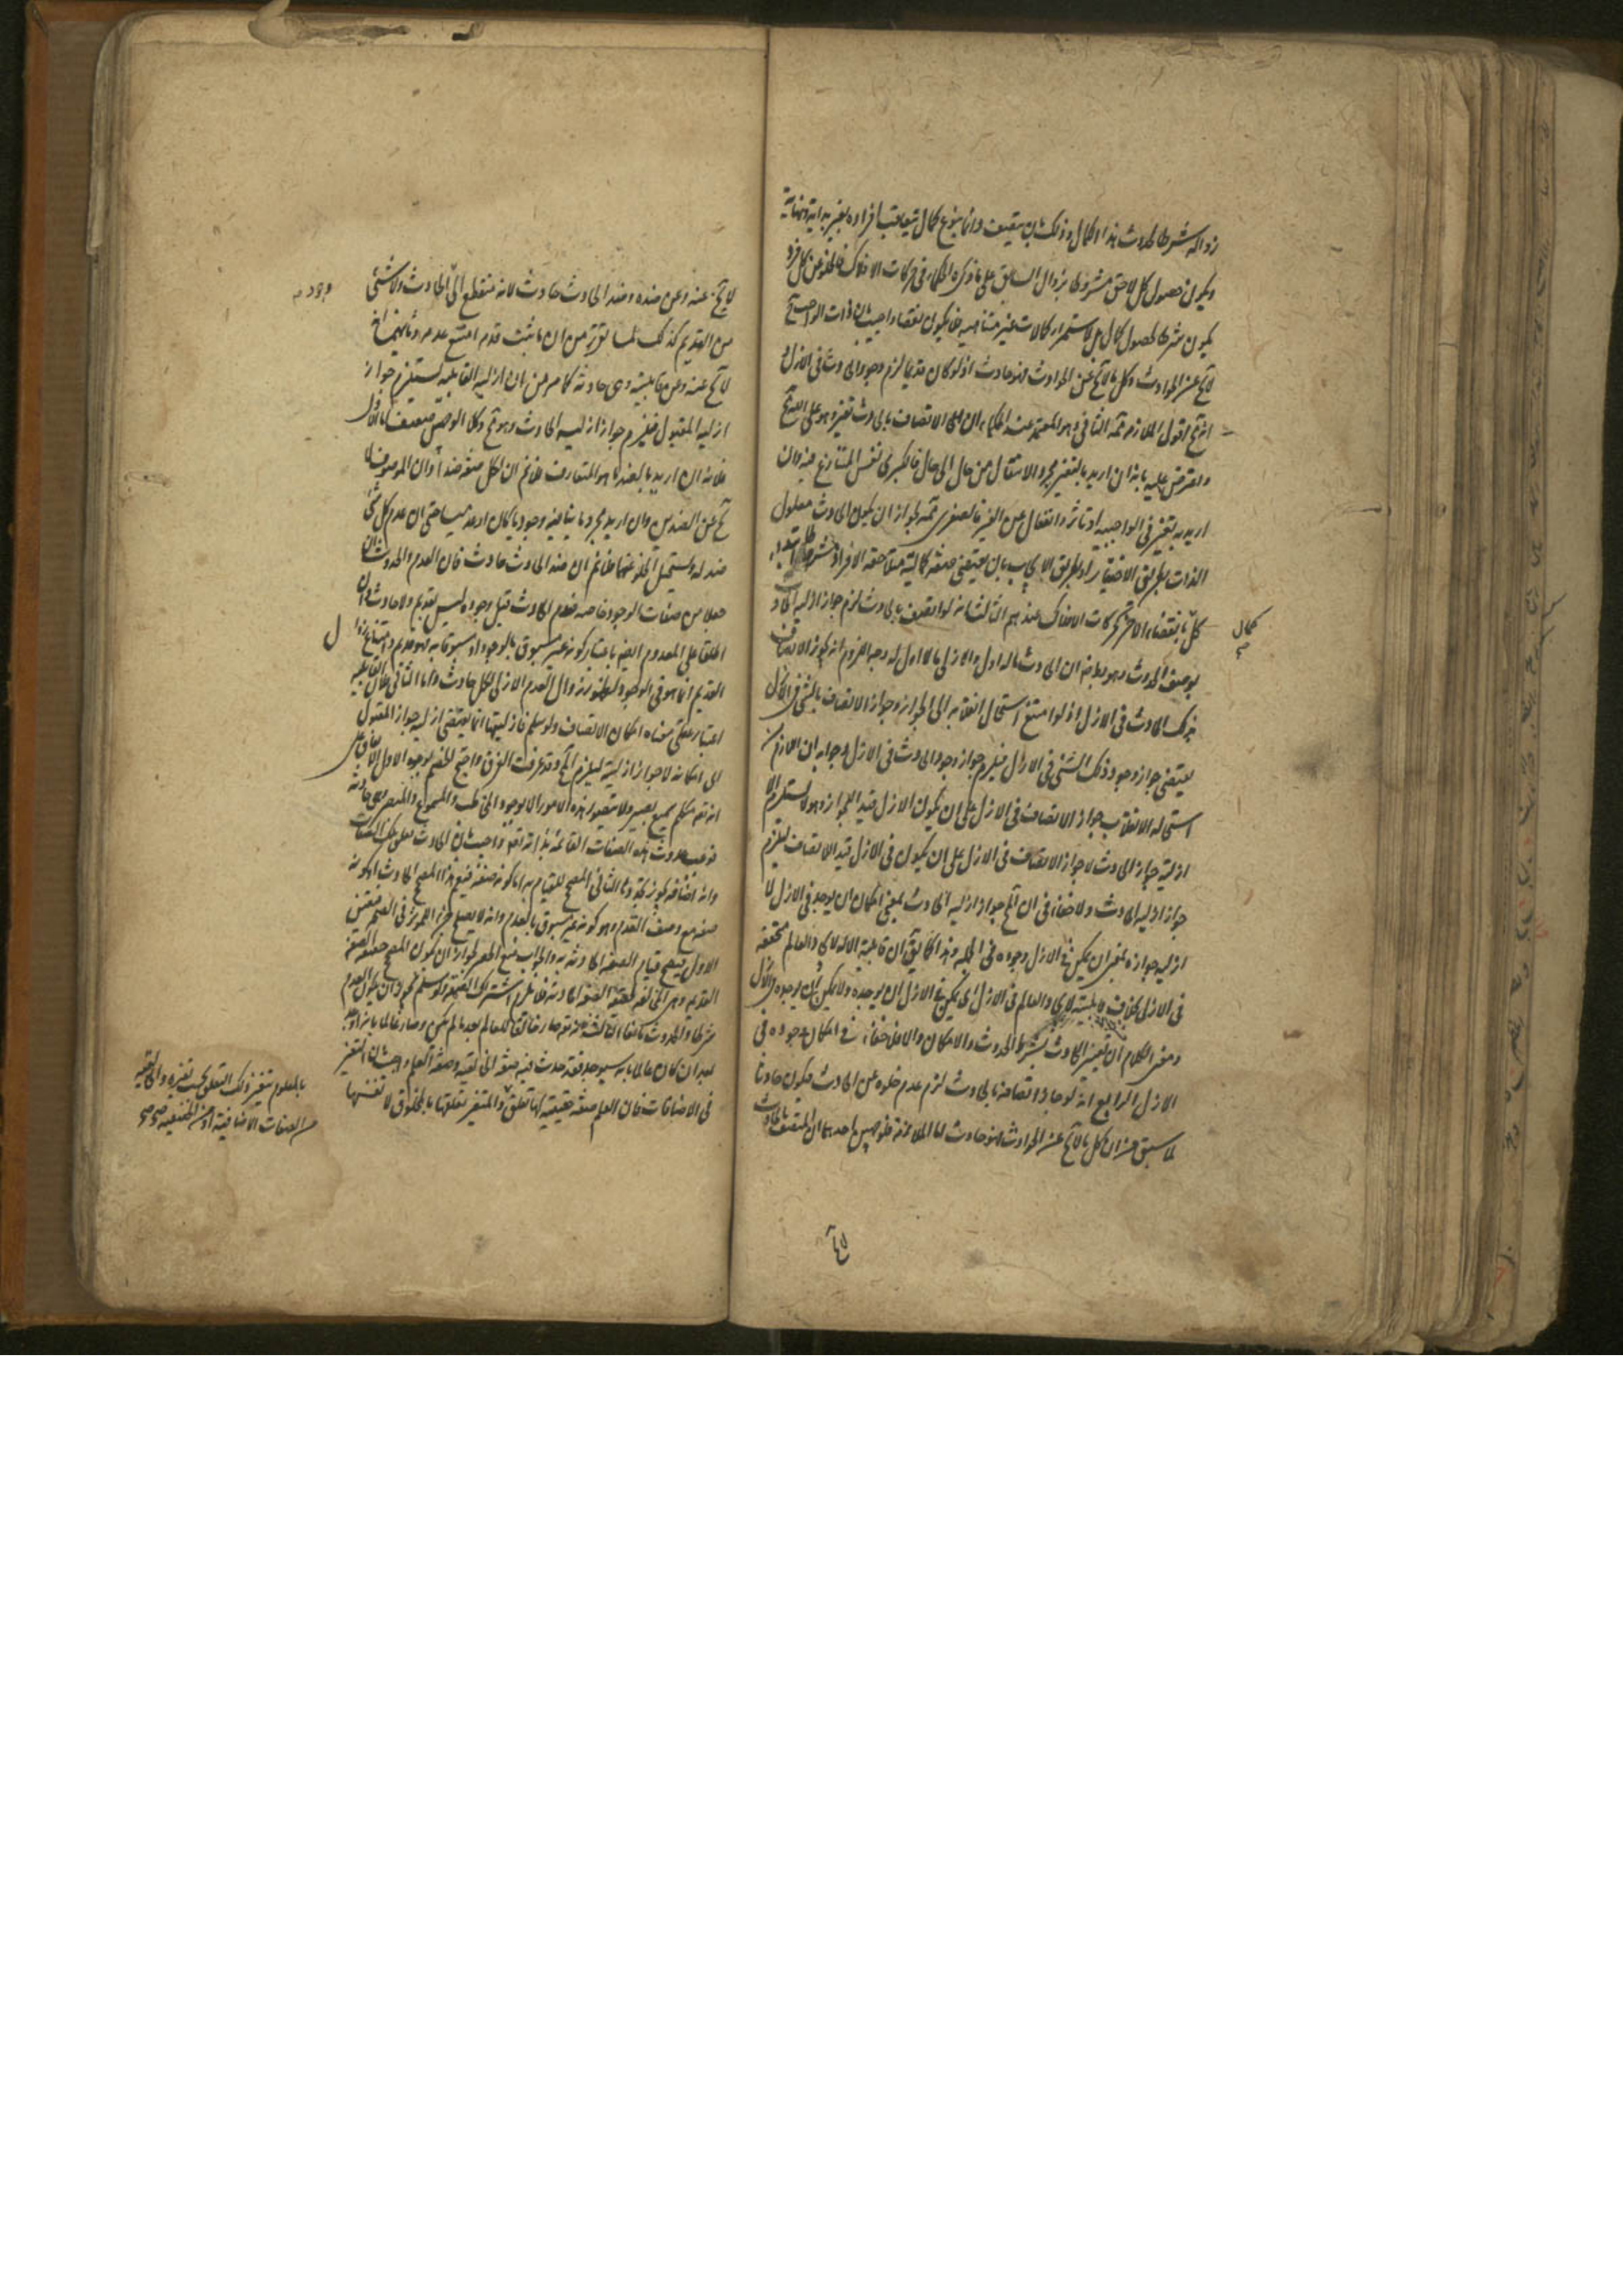 زواله شرطا لحدوث هذا الكمال وذلك بان يتصف دائما بنوع كمال يتعاقب افراده بغير بداية ونهاية
ويكون حصول كل لاحق مشروطا بزوال السابق على ما ذكره الحكماء في حركات الافلاك فالخلو عن كل فرد
يكون شرطا لحصول كمال بل لاستمرار كمالات غير متناهية فلا يكون نقصا واجيب بان ذات الواجب
لا يخ عن الحوادث وكل ما لا يخ عن الحوادث فهو حادث اذ لو كان قديما لزم وجود الحادث في الازل
اقول الملازمة الثاني وهو المعتمد عند الحكماء ان الاتصاف بالحادث تغير وهو على الله تع مح
واعترض عليه بانه ان اريد بالتغير مجرد الانتقال من حال الى حال فالكبرى نفس المتنازع فيه وان
اريد به تغير في الواجبية او تاثر وانفعال عن الغير فالصغرى ممنوعة لجواز ان يكون الحادث معلول
الذات بطريق الاختيار او بطريق الايجاب بان يقتضي صفة كمالية متلاحقة الافراد مشروطا ابتداء
كل بانقضاء الاخر كحركات الافلاك عندهم الثالث انه لو اتصف بالحادث لزم جواز ازلية الحادث
كمال
بوصف الحدوث وهو بط فان الحادث ما له اول والازلي ما لا اول له وجه اللزوم انه يجوز الاتصاف
بذلك الحادث في الازل اذ لو امتنع استحال انقلابه الى الجواز وجواز الاتصاف بالشئ في الازل
يقتضي جواز وجود ذلك الشئ في الازل فيلزم جواز وجود الحادث في الازل وجوابه ان اللازم من
استحالة الانقلاب جواز الاتصاف في الازل على ان يكون الازل قيدا للجواز وهو لا يستلزم الا
ازلية جواز الحادث لا جواز الاتصاف في الازل على ان يكون في الازل قيد الاتصاف ليلزم
جواز ازلية الحادث ولا خفاء في ان المح جواز ازلية الحادث بمعنى امكان ان يوجد في الازل لا
ازلية جوازه بمعنى ان يمكن في الازل وجوده في الجملة وهذا كما يق ان قابلية الاله لايجاد العالم متحققة
في الازل بخلاف قابليته لايجاد العالم في الازل اي يمكن في الازل ان يوجده ولا يمكن ان يوجده في الازل
ومعنى الكلام ان تعتبر الحادث بشرط الحدوث والامكان والا فلا خفاء في امكان وجوده في
الازل الرابع انه لو جاز اتصافه بالحادث لزم عدم خلوه عن الحادث فيكون حادثا
لما سبق من ان كل ما لا يخ عن الحوادث فهو حادث اما الملازمة فلوجهين احدهما ان المتصف بالحادث
لا يخ عنه وعن ضده وضد الحادث حادث لانه منقطع الى الحادث ولا شئ
من القديم كذلك لما تقرر من ان ما ثبت قدمه امتنع عدمه وثانيهما انه
لا يخ عنه وعن قابليته وهي حادثة لما مر من ان ازلية القابلية يستلزم جواز
ازلية المقبول فيلزم جواز ازلية الحادث وهو مح وكلا الوجهين ضعيف اما الاول
فلانه ان اريد بالضد ما هو المتعارف فلا نم ان لكل صفة ضدا وان الموصوف لا
يخ عن الضدين وان اريد مجرد ما ينافيه وجوديا كان او عدميا حتى ان عدم كل شئ
ضد له ويستحيل الخلو عنهما فلا نم ان ضد الحادث حادث فان القدم والحدوث ان
جعلا من صفات الوجود خاصة فعدم الحادث قبل وجوده ليس بقديم ولا حادث وان
اطلقا على المعدوم ايضا باعتبار كونه غير مسبوق بالوجود او مسبوقا به فهو قديم وامتناع زوال
القديم انما هو في الوجود لظهور زوال العدم الازلي لكل حادث واما الثاني فلان القابلية
اعتبار عقلي معناه امكان الاتصاف ولو سلم فازليتها انما يقتضي ازلية جواز المقبول
اي امكانه لا جواز ازليته ليلزم المح وقد عرفت الفرق واحتج الخصم بوجوه الاول الاتفاق على
انه تع متكلم سميع بصير ولا يتصور هذه الامور الا بوجود المخاطب والمسموع والمبصر وهي حادثة
فوجب حدوث هذه الصفات القائمة بذاته تع واجيب بان الحادث تعلق تلك الصفات
وانه اضافة يجوز تجددها الثاني المصحح للقيام به اما كونه صفة فيعم هذا المصحح الحادث او كونه
صفة مع وصف القدم وهو كونه غير مسبوق بالعدم وانه لا يصلح جزءا للمؤثر في الصحة فتعين
الاول فيصح قيام الصفة الحادثة به والجواب منع الحصر لجواز ان يكون المصحح حقيقة الصفة
القديمة وهي المخالفة لحقيقة الصفة الحادثة فلا يلزم اشتراك الصحة ولو سلم فيجوز ان يكون القدم
شرطا والحدوث مانعا الثالث انه تع صار خالقا للعالم بعد ما لم يكن وصار عالما بانه وجد
بعد ان كان عالما بانه سيوجد فقد حدث فيه صفة الخالقية وصفة العلم واجيب بان التغير
في الاضافات فان العلم صفة حقيقية لها تعلق والمتغير تعلقها بالمخلوق لا نفسها
بالمعلوم يتغير ذلك التعلق بحسب تغيره والخالقية
من الصفات الاضافية او من الحقيقية